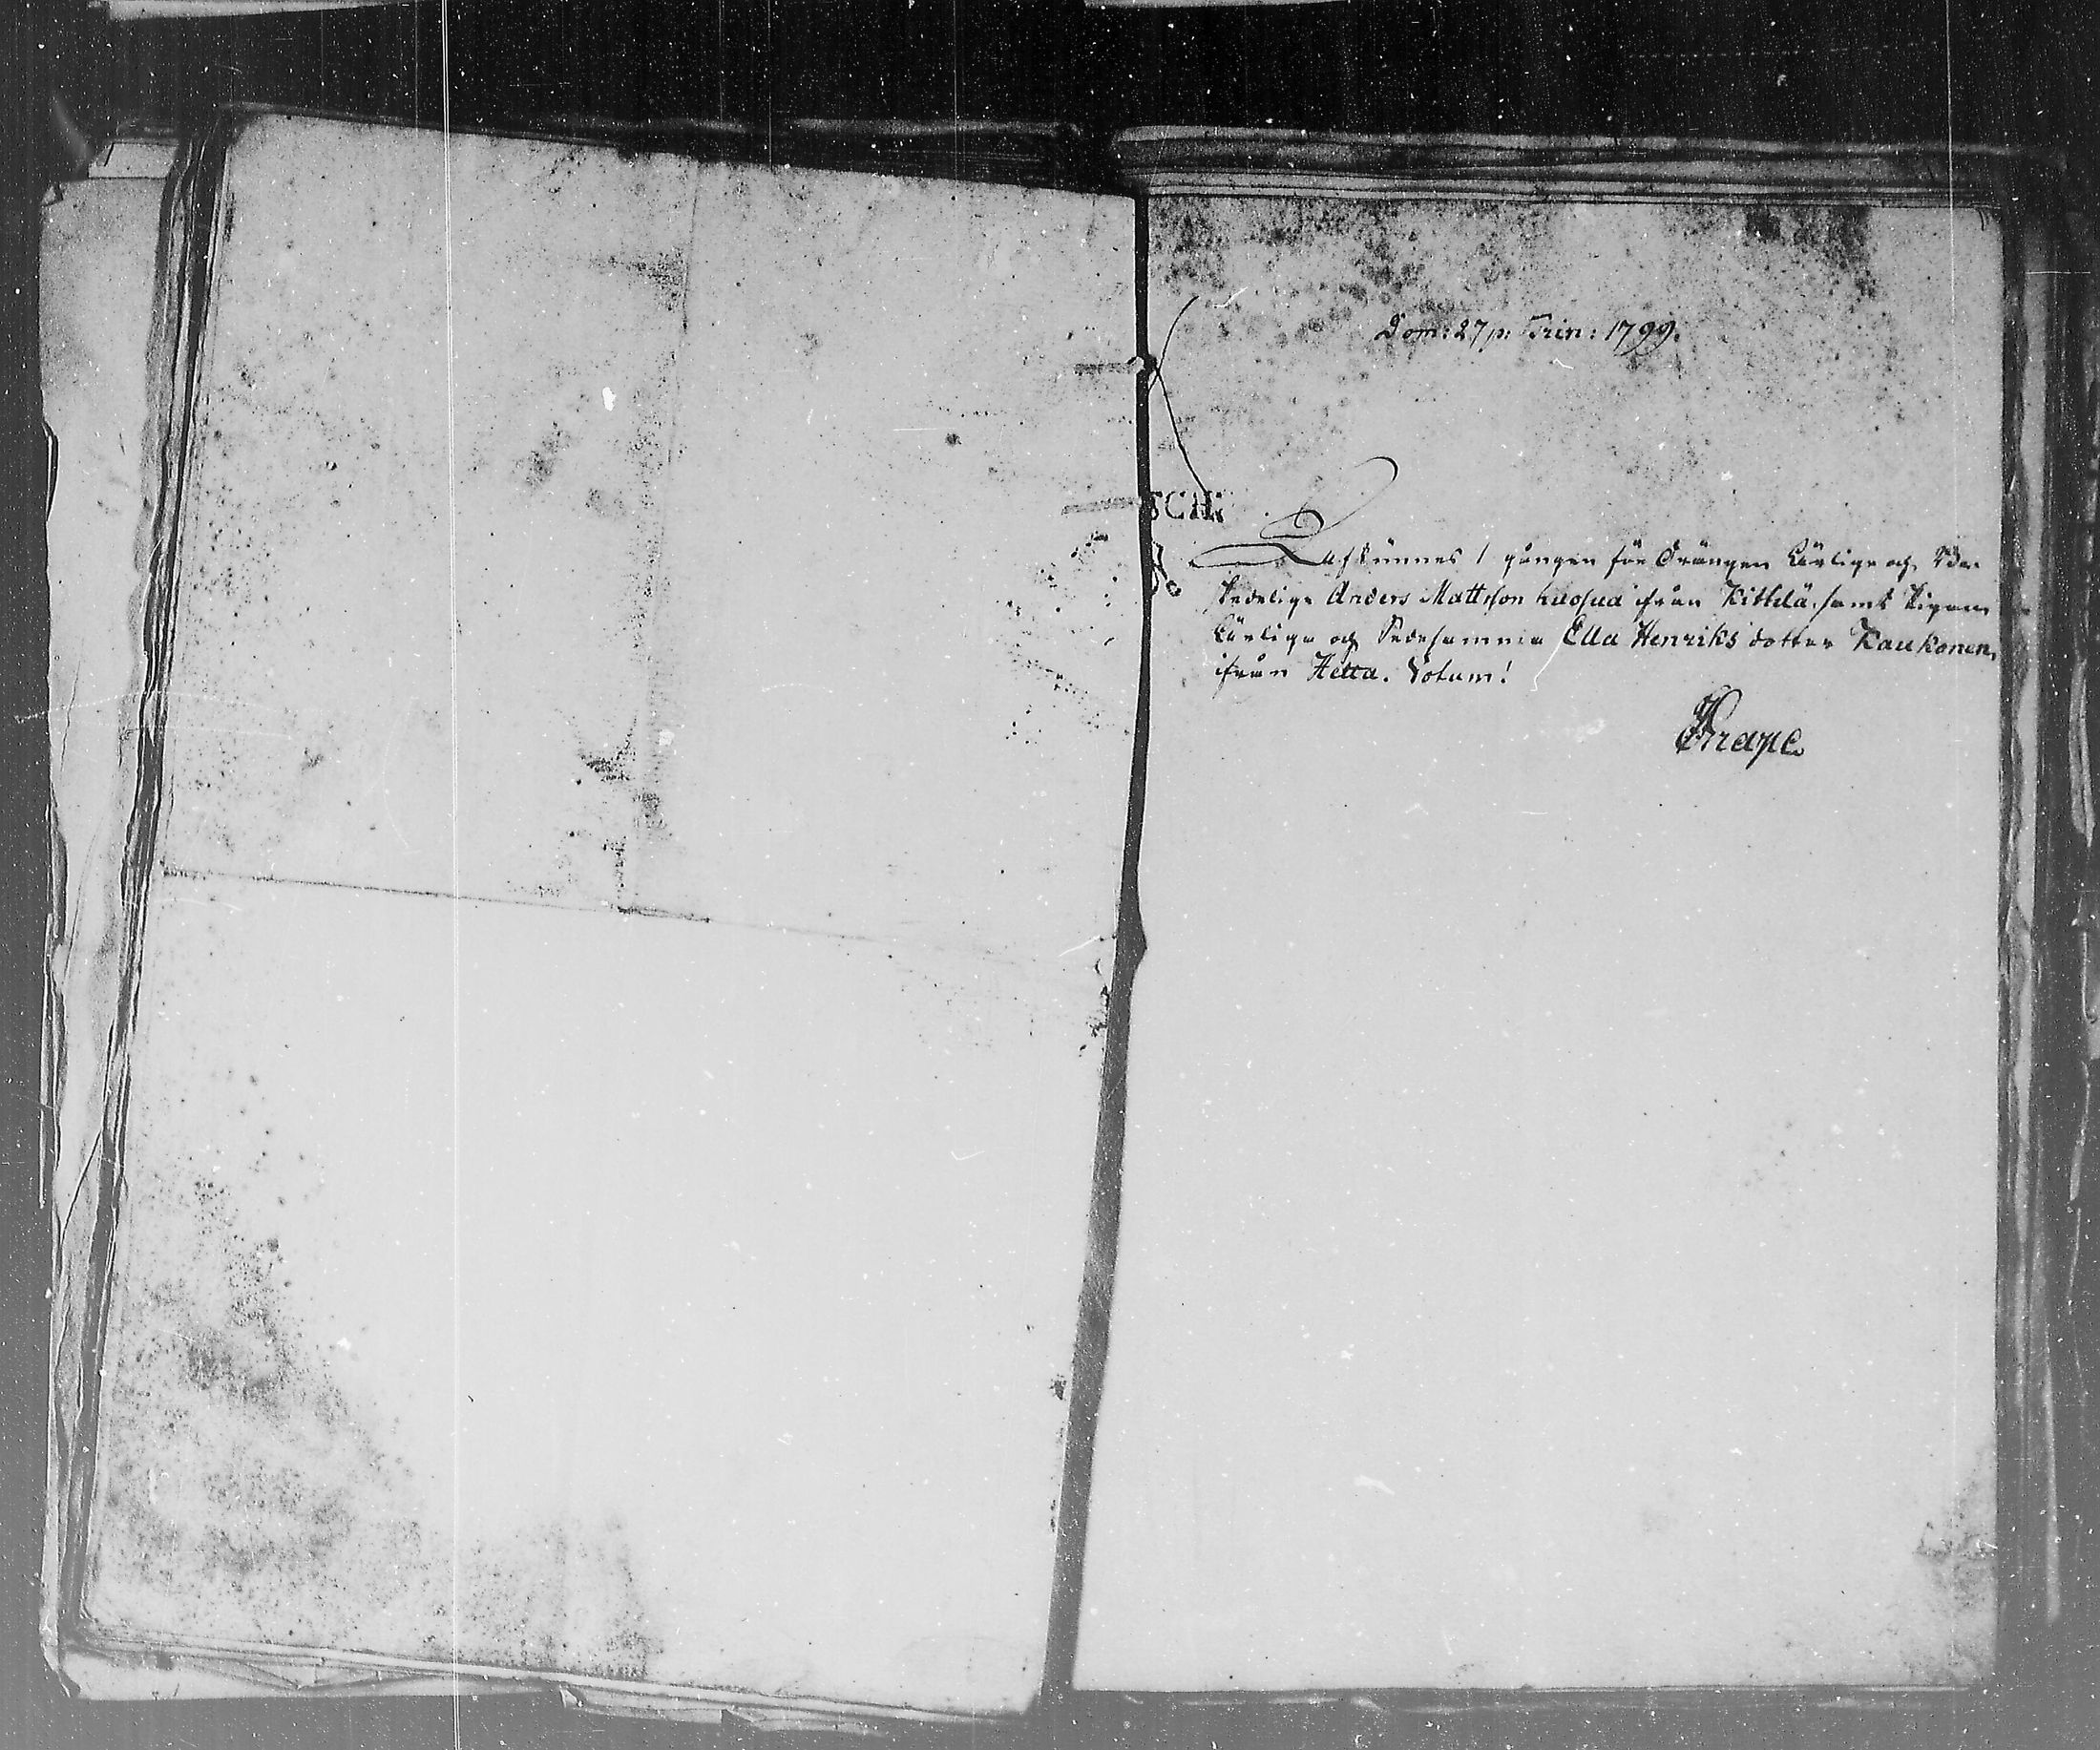 Dom: 27 p: Trin: 1799.
SCHi
Afkunnes 1 gången för Drängen Ärlige och Be-
skedelige Anders Mattsson huosua ifrån Kittilä, samt Pigan
Ärliga och Sedesamma Ella Henriks dotter Kaukonen,
ifrån Hetta. Votum!